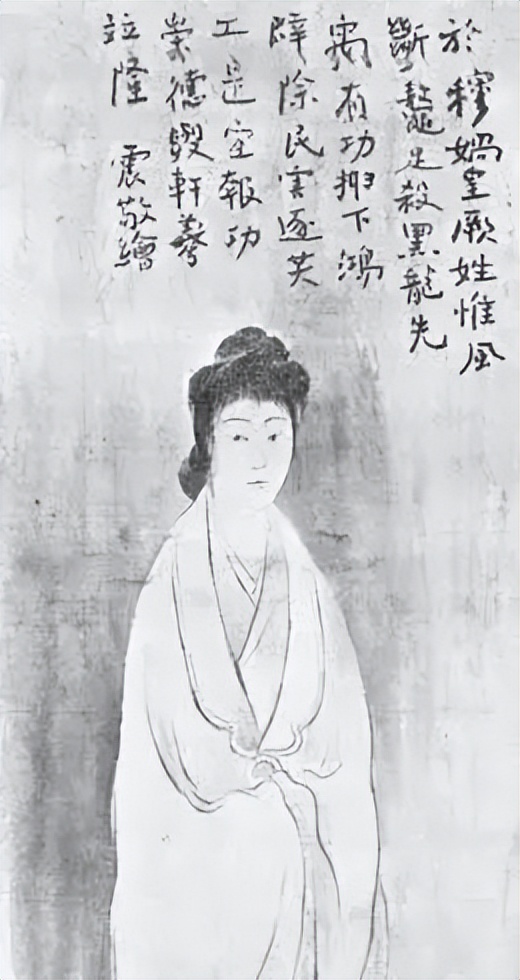 於穆媧皇厥姓惟風
斷鼇足殺黑龍先
禹有功抑下鴻
辟除民害逐共
工是宜報功
崇德軒羲
竝隆 震敬繪